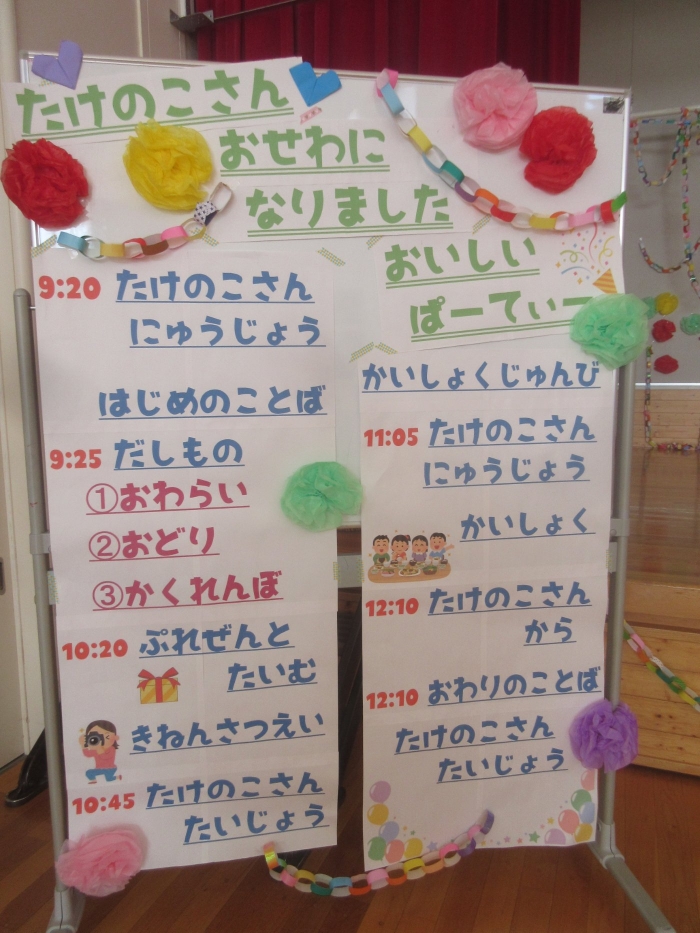 たけのこさん
おせわに
なりました
おいしい
ぱーてぃー
9:20 たけのこさん
にゅうじょう
はじめのことば
9:25 だしもの
①おわらい
②おどり
③かくれんぼ
10:20 ぷれぜんと
たいむ
きねんさつえい
10:45 たけのこさん
たいじょう
かいしょくじゅんび
11:05 たけのこさん
にゅうじょう
かいしょく
12:10 たけのこさん
から
12:10 おわりのことば
たけのこさん
たいじょう